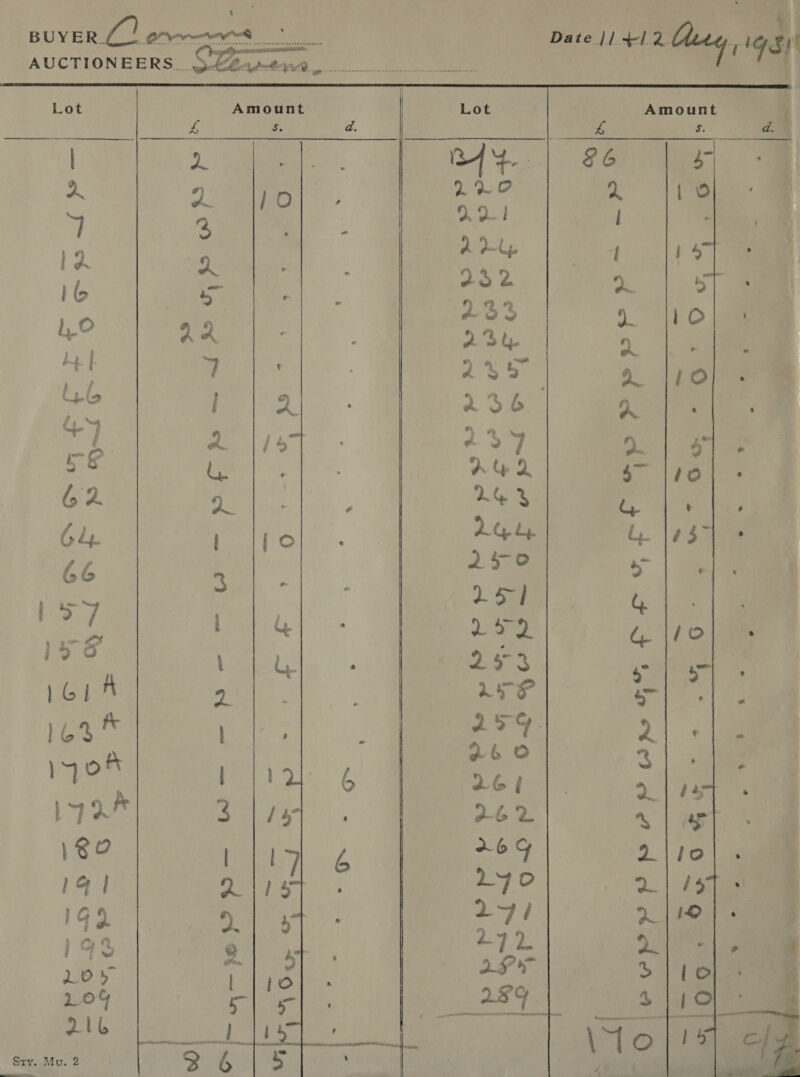 BUYER Date 11 + 12 Aug, 1931
AUCTIONEERS Stevens
Lot Amount Lot Amount
£ s. d. £ s. d.
1 2 . . B/f. 86 5 .
2 2 10 . 220 2 10 .
7 3 . . 221 1 . .
12 2 . . 224 1 15 .
16 5 . . 232 2 5 .
40 22 . . 233 2 10 .
41 7 . . 234 2 . .
46 1 2 . 235 2 10 .
47 2 15 . 236 2 . .
58 4 . . 237 2 5 .
62 2 . . 242 5 10 .
64 1 10 . 243 4 . .
66 3 . . 244 4 15 .
157 1 4 . 250 5 . .
158 1 4 . 251 4 . .
161A 2 . . 252 4 10 .
163A 1 . . 253 5 5 .
170A 1 12 6 258 5 . .
172A 3 15 . 259 2 . .
180 1 17 6 260 3 . .
191 2 15 . 261 2 15 .
192 2 5 . 262 3 5 .
193 2 5 . 269 2 10 .
205 1 10 . 270 2 15 .
209 5 5 . 271 2 10 .
216 1 15 . 272 2 . .
86 5 . 285 3 10 .
289 3 10 .
170 15 c/f
Sty. Mu. 2